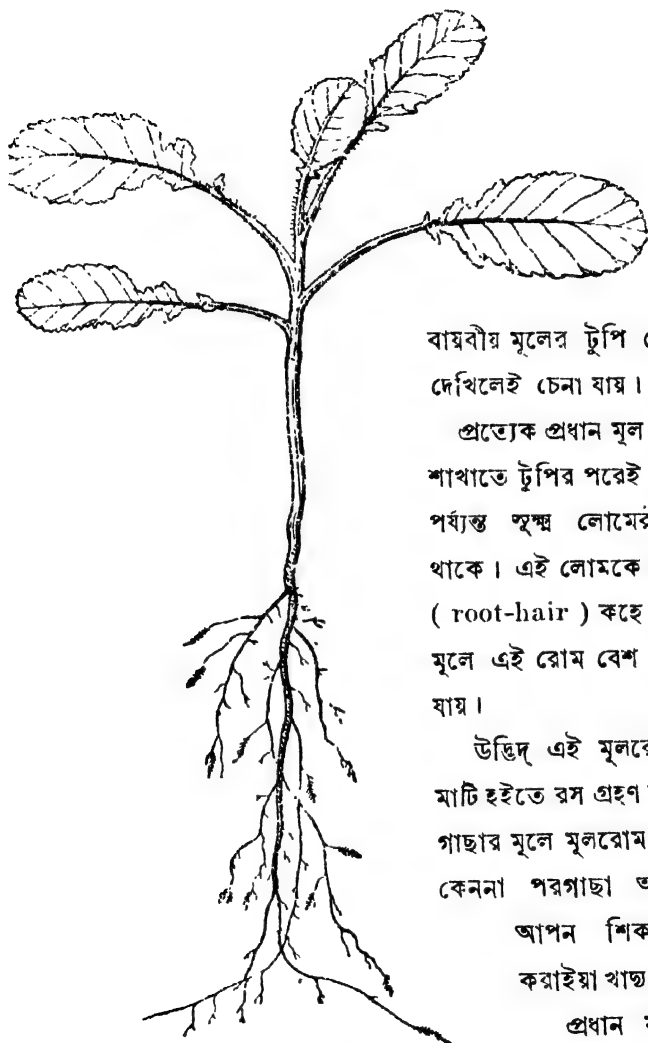 বায়বীয় মূলের টুপি
দেখিলেই চেনা যায়।
প্রত্যেক প্রধান মূল
শাখাতে টুপির পরেই
পর্য্যন্ত সূক্ষ্ম লোমের
থাকে। এই লোমকে
( root-hair ) কহে
মূলে এই রোম বেশ
যায়।
উদ্ভিদ্ এই
মাটি হইতে রস গ্রহণ
গাছার মূলে মূলরোম
কেননা পরগাছা
আপন
করাইয়া খাদ্য
প্রধান